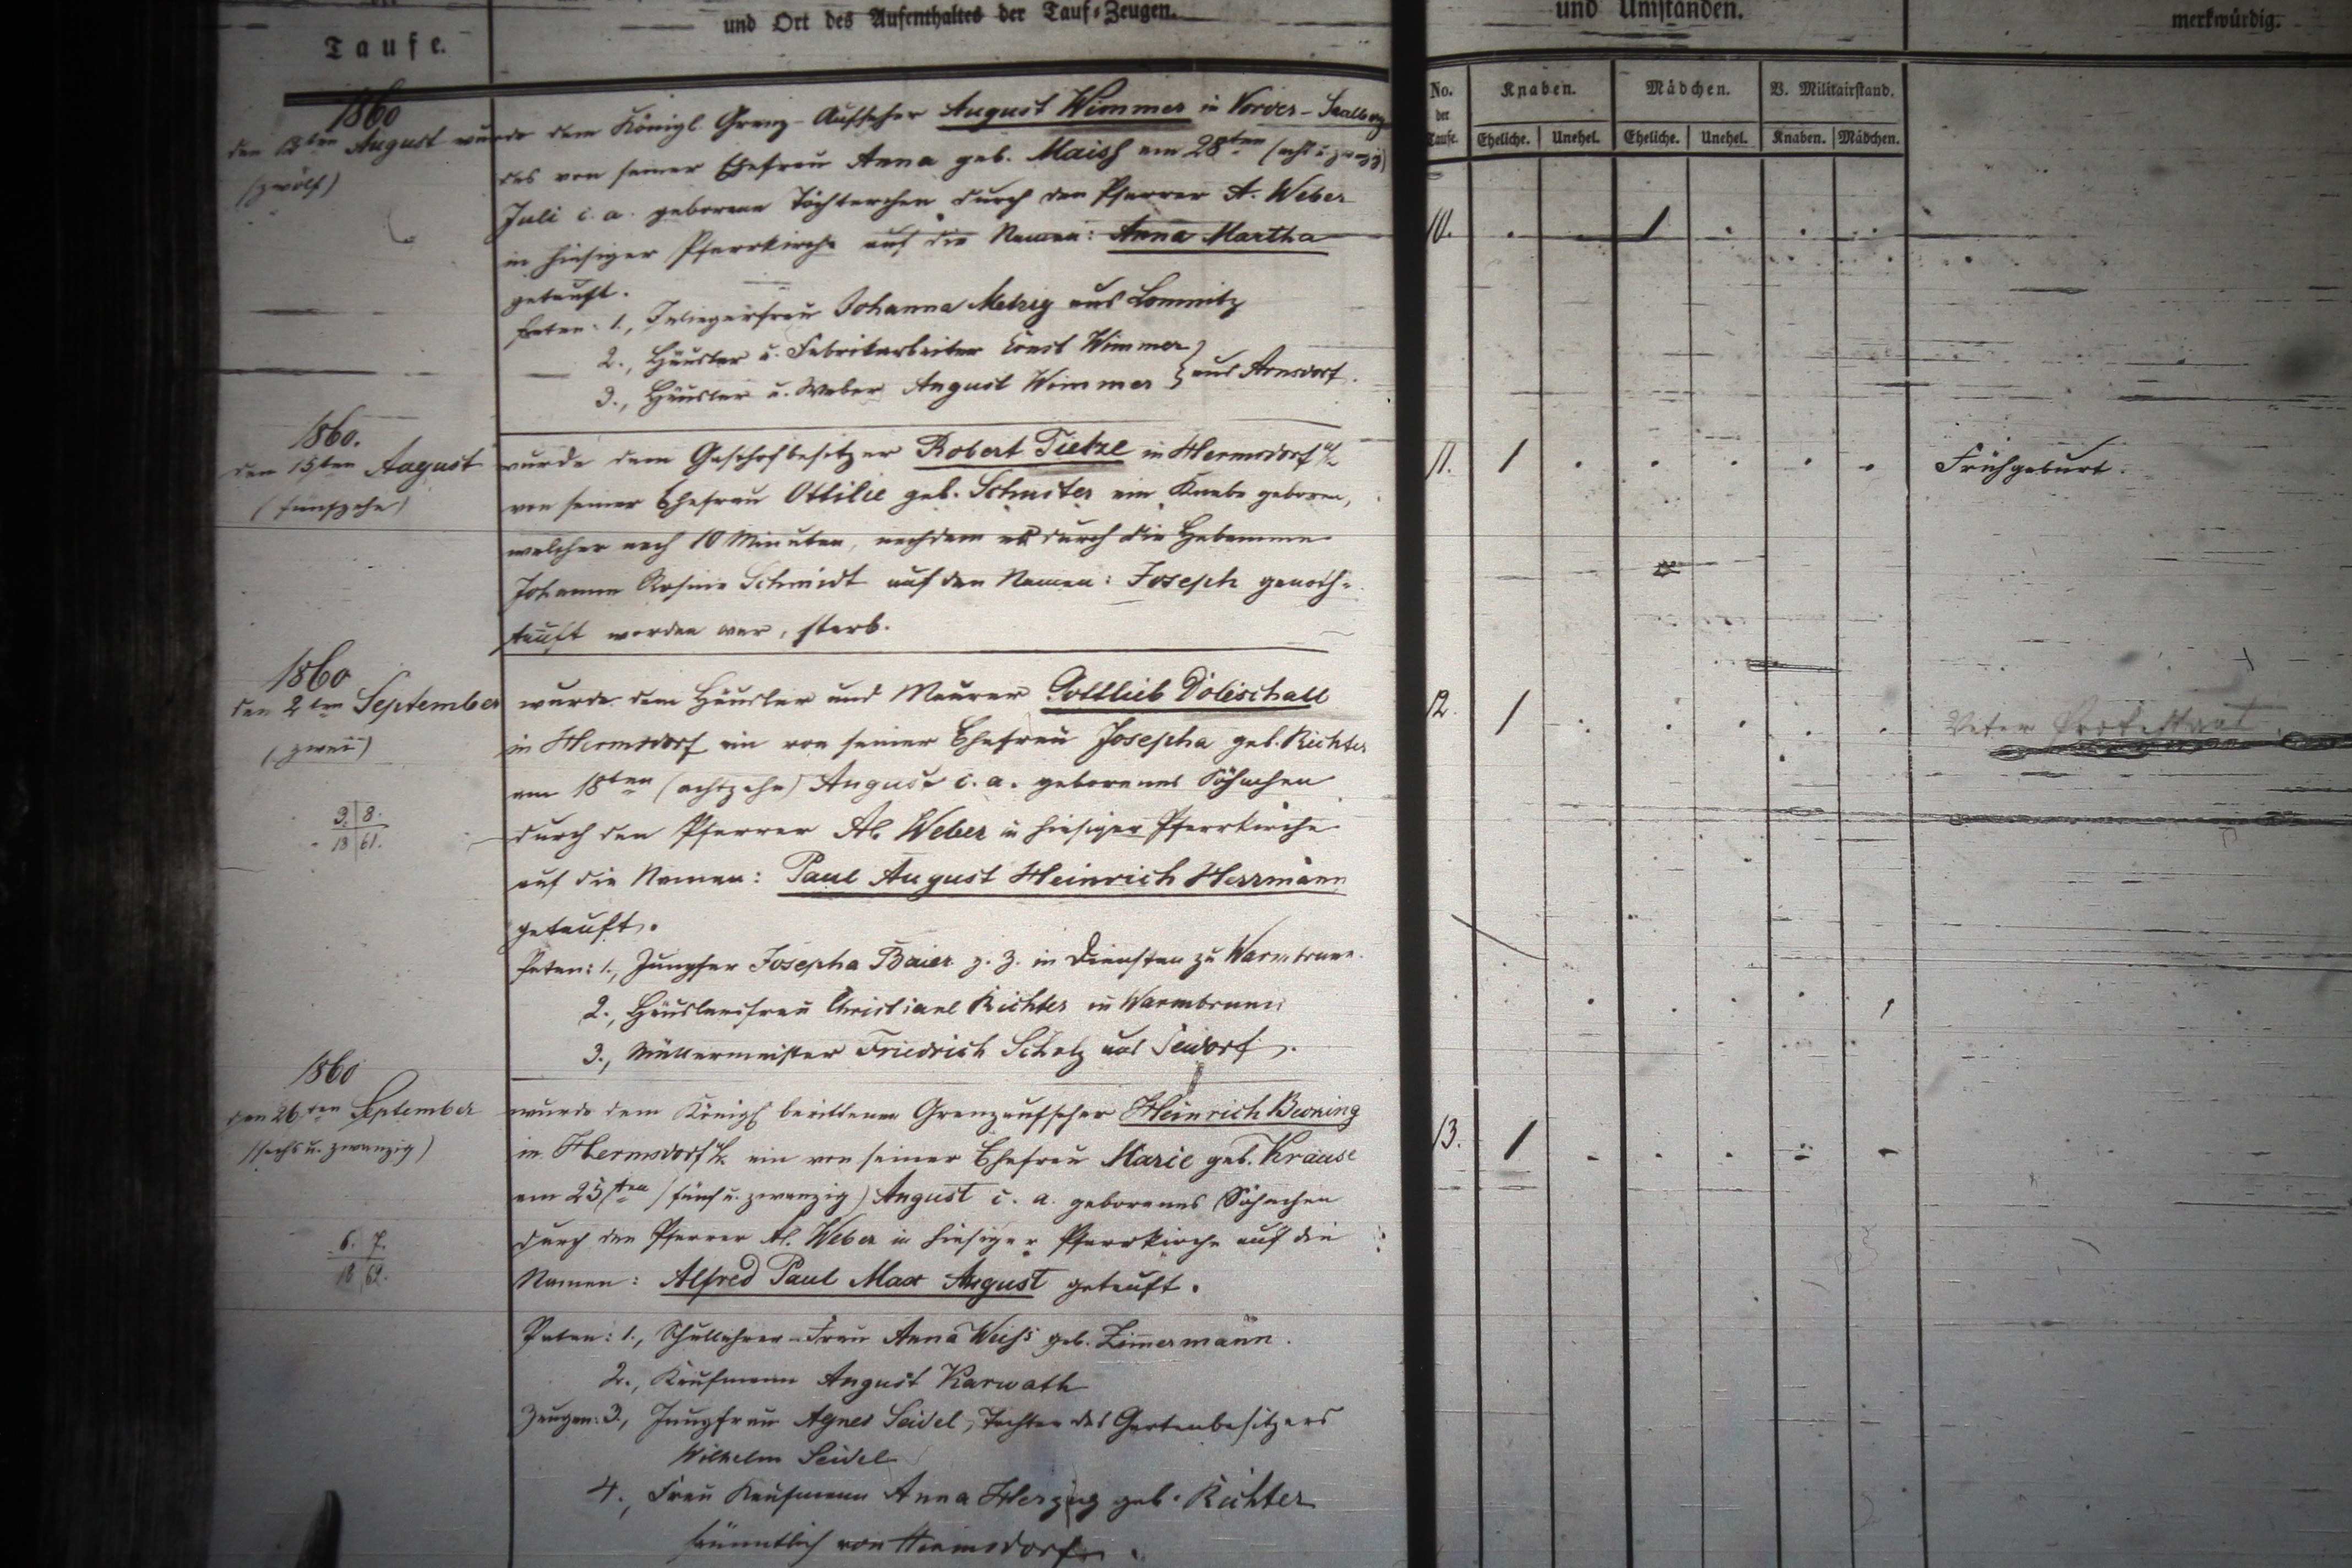 Taufe.
und Ort des Aufenthaltes der Tauf-Zeugen.
und Umständen.
merkwürdig.
No. der Taufe.
Knaben.
Mädchen.
V. Militairstand.
Eheliche. Unehel. Eheliche. Unehel. Knaben. Mädchen.
1860
den 12ten August
(zwölf)
wurde dem Königl. Grenz-Aufseher August Wimmer in Vorder-Saalberg
das von seiner Ehefrau Anna geb. Maisch am 28ten (acht u. zwanzig)
Juli c. a. geborene Töchterchen durch den Pfarrer A. Weber
in hiesiger Pfarrkirche auf die Namen: Anna Martha
getauft.
Paten: 1., Inliegerfrau Johanna Metzig aus Lomnitz
2., Häusler u. Fabrikarbeiter Ernst Wimmer
3., Häusler u. Weber August Wimmer } aus Arnsdorf.
10. 1
1860.
den 15ten August
(fünfzehn)
wurde dem Gasthofbesitzer Robert Tietze in Hermsdorf u/K
von seiner Ehefrau Ottilie geb. ein Knabe geboren,
welcher nach 10 Minuten, nachdem er durch die Hebamme
Johanne Rosine Schmidt auf den Namen: Joseph genoth-
tauft worden war, starb.
11. 1 Frühgeburt.
1860
den 2ten September
(zwei)
3. 8.
18 61.
wurde dem Häusler und Maurer Gottlieb Doleschall
in Hermsdorf ein von seiner Ehefrau Josepha geb. Richter
am 18ten (achtzehn) August c. a. geborenes Söhnchen
durch den Pfarrer Al. Weber in hiesiger Pfarrkirche
auf die Namen: Paul August Heinrich Herrmann
getauft.
Paten: 1., Jungfer Josepha Baier z. Z. in Diensten zu Warmbrunn.
2., Häuslersfrau Christiane Richter in Warmbrunn
3., Müllermeister Friedrich Scholz aus Seidorf.
12. 1 Vater Protestant.
1860
den 26ten September
(sechs u. zwanzig)
6. 7.
18 62.
wurde dem Königl berittenen Grenzaufseher Heinrich
in Hermsdorf u/K ein von seiner Ehefrau Marie geb. Krause
am 25ten (fünf u. zwanzig) August c. a. geborenes Söhnchen
durch den Pfarrer Al. Weber in hiesiger Pfarrkirche auf die
Namen: Alfred Paul Max August getauft.
Paten: 1., Schullehrer-Frau Anna Weiß geb. Zimmermann.
2., Kaufmann August Karwath
Zeugen: 3., Jungfrau Agnes Seidel, Tochter des Gartenbesitzers
Wilhelm Seidel
4., Frau Kaufmann Anna Herzog geb. Richter
sämmtlich von Hermsdorf.
13. 1